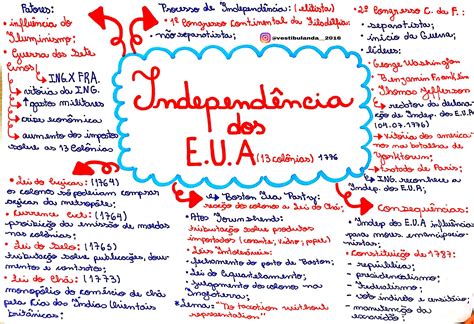 Fatores:
• influência do
Iluminismo:
• Guerra dos Sete
Anos
→ ING. X FRA.
→ vitória da ING.
→ ↑gastos militares
→ crise econômica
→ aumento dos impostos
sobre as 13 Colônias
Processo de Independência: (elitista)
• 1º Congresso Continental da Filadélfia:
→ não separatista;
@vestibulanda__2018
• 2º Congresso C. da F.:
→ separatista;
→ início da Guerra;
→ líderes:
George Washington
Benjamin Franklin
Thomas Jefferson
→ redator da declara-
ção de Indep. dos E.U.A
(04.07.1776)
→ vitória dos america-
nos na batalha de
Yorktown;
→ tratado de Paris:
↳ ING. reconhece a
Indep. dos E.U.A;
Independência
dos
E.U.A (13 colônias) 1776
• Lei do Açúcar: (1764)
os colonos só poderiam comprar
açúcar da metrópole;
• Currency Act: (1764)
proibição da emissão de moedas
nas colônias;
• Lei do Selo: (1765)
tributação sobre publicações, docu-
mentos e contratos;
• Lei do Chá: (1773)
monopólio do comércio de chá
pela Cia das Índias Orientais
britânicas;
→ Boston Tea Party:
reação do colono a Lei do Chá;
• Atos Townshend:
tributação sobre produtos
importados (corante, vidro, papel)
• Leis Intoleráveis:
→ fechamento do porto de Boston;
→ Lei do Aquartelamento;
→ julgamento do colono na
Inglaterra;
*Lema: "No taxation without
representation"
Consequências:
• Indep. dos E.U.A influencia
para mais emancipacio-
nistas;
• Constituição de 1787:
- república;
- presidencialismo;
- federalismo;
- voto indireto e censitário;